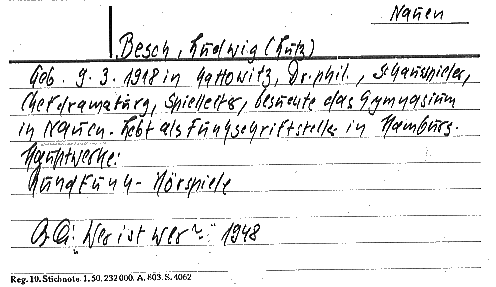 Nauen
Besch, Ludwig (Lutz)
Geb. 9.3.1918 in Kattowitz, Dr. phil., Schauspieler,
Chefdramaturg, Spielleiter, besuchte das Gymnasium
in Nauen. Lebt als Funkschriftsteller in Hamburg.
Hauptwerke:
Rundfunk-Hörspiele
Wer ist wer 1948
Reg. 19. Stichnote. 1. 50. 232000. A. 803. S. 4062